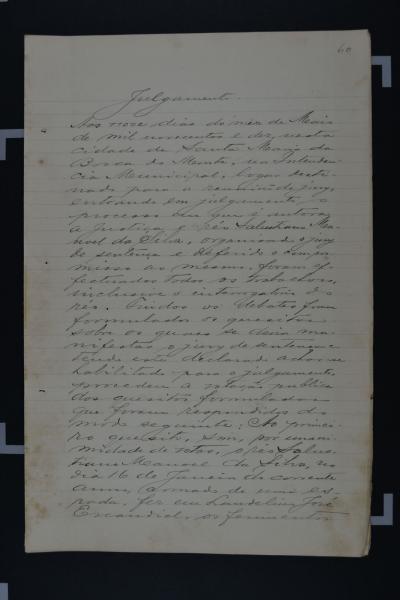 60
Julgamento.
Aos nove dias do mez de Maio
de mil novecentos e dez, nesta
cidade de Santa Maria da
Bocca do Monte, na Intenden-
cia Municipal, logar desti-
nado para a reunião do jury,
entrando em julgamento o
processo em que é autora
a Justiça e réo Salustiano Ma-
noel da Silva, organisado o jury
de sentença e deferido o compro-
misso ao mesmo, foram ef-
fectuados todos os trabalhos,
inclusive o interrogatorio do
réo. Findos os debates foram
formulados os quesitos
sobre os quaes se devia ma-
nifestar o jury de sentença e
tendo este declarado achar-se
habilitado para o julgamento,
procedeu á votação publica
dos quesitos formulados
que foram respondidos do
modo seguinte: Ao primei-
ro quesito, Sim, por unani-
midade de votos, o réo Salus-
tiano Manoel da Silva, no
dia 16 de Janeiro do corrente
anno, armado de uma es-
pada, fez em Laudelino José
Escandiel, os ferimentos